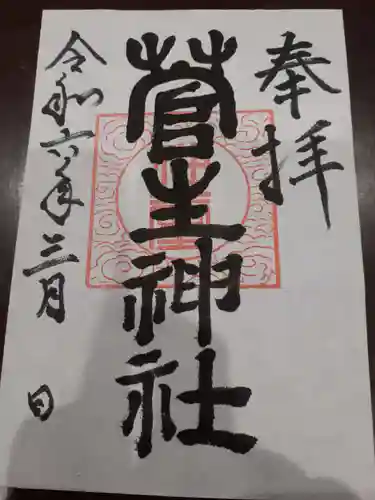 奉拝
菅生神社
令和六年三月 日